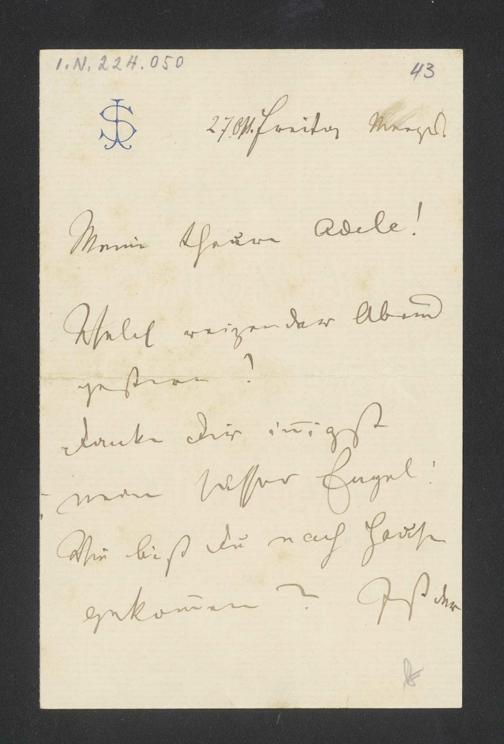 I.N. 224.050
43
JS
27 Okt. Freitag Morgd.
Meine theure Adele!
Welch reizender Abend
gestern!
Danke Dir innigst
mein süßer Engel!
Wie bist Du nach Hause
gekommen? Ist der